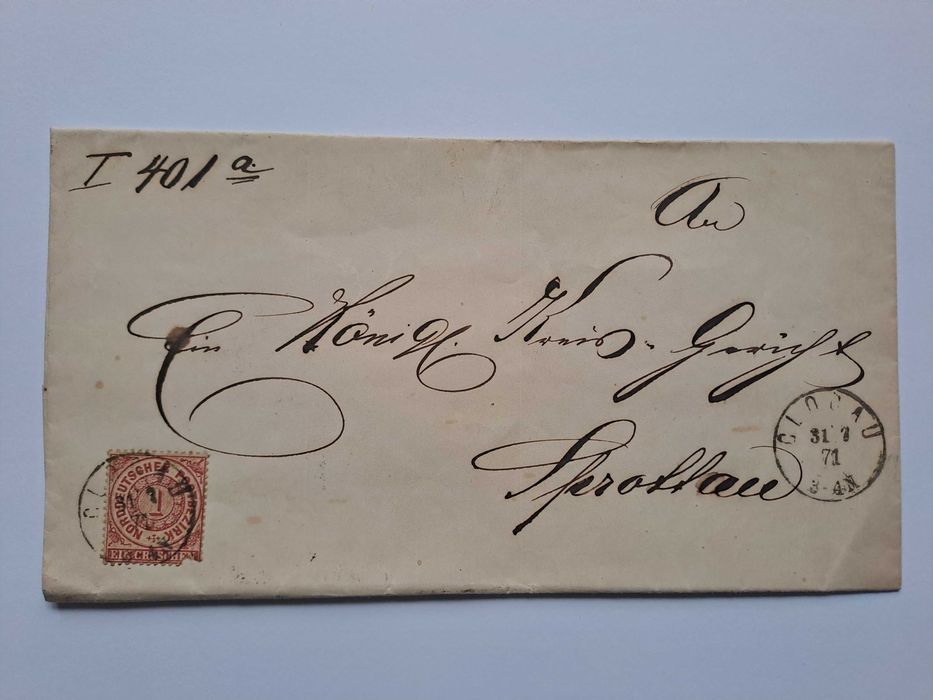 I 401 a.
An
Ein Königl. Kreis-Gericht
Sprottau
GLOGAU
31 7
71
3-4N
NORDDEUTSCHER POSTBEZIRK
1
EIN GROSCHEN